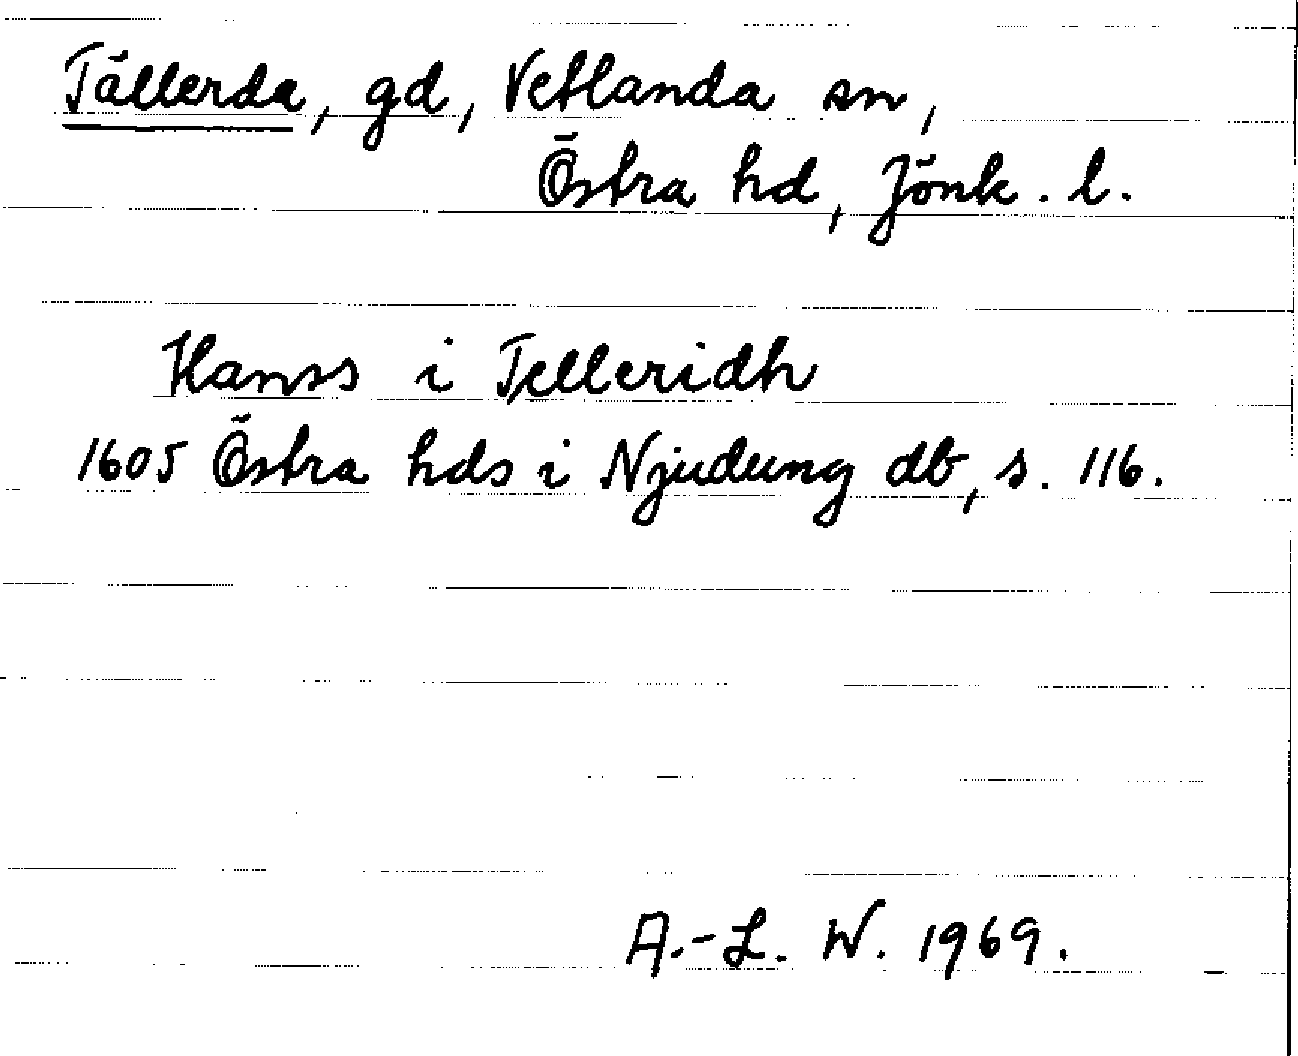 Tällerda, gd, Vetlanda sn,
Östra hd, Jönk. l.
Hanss i Telleridh
1605 Östra hds i Njudung db, s. 116.
A.-L. W. 1969.